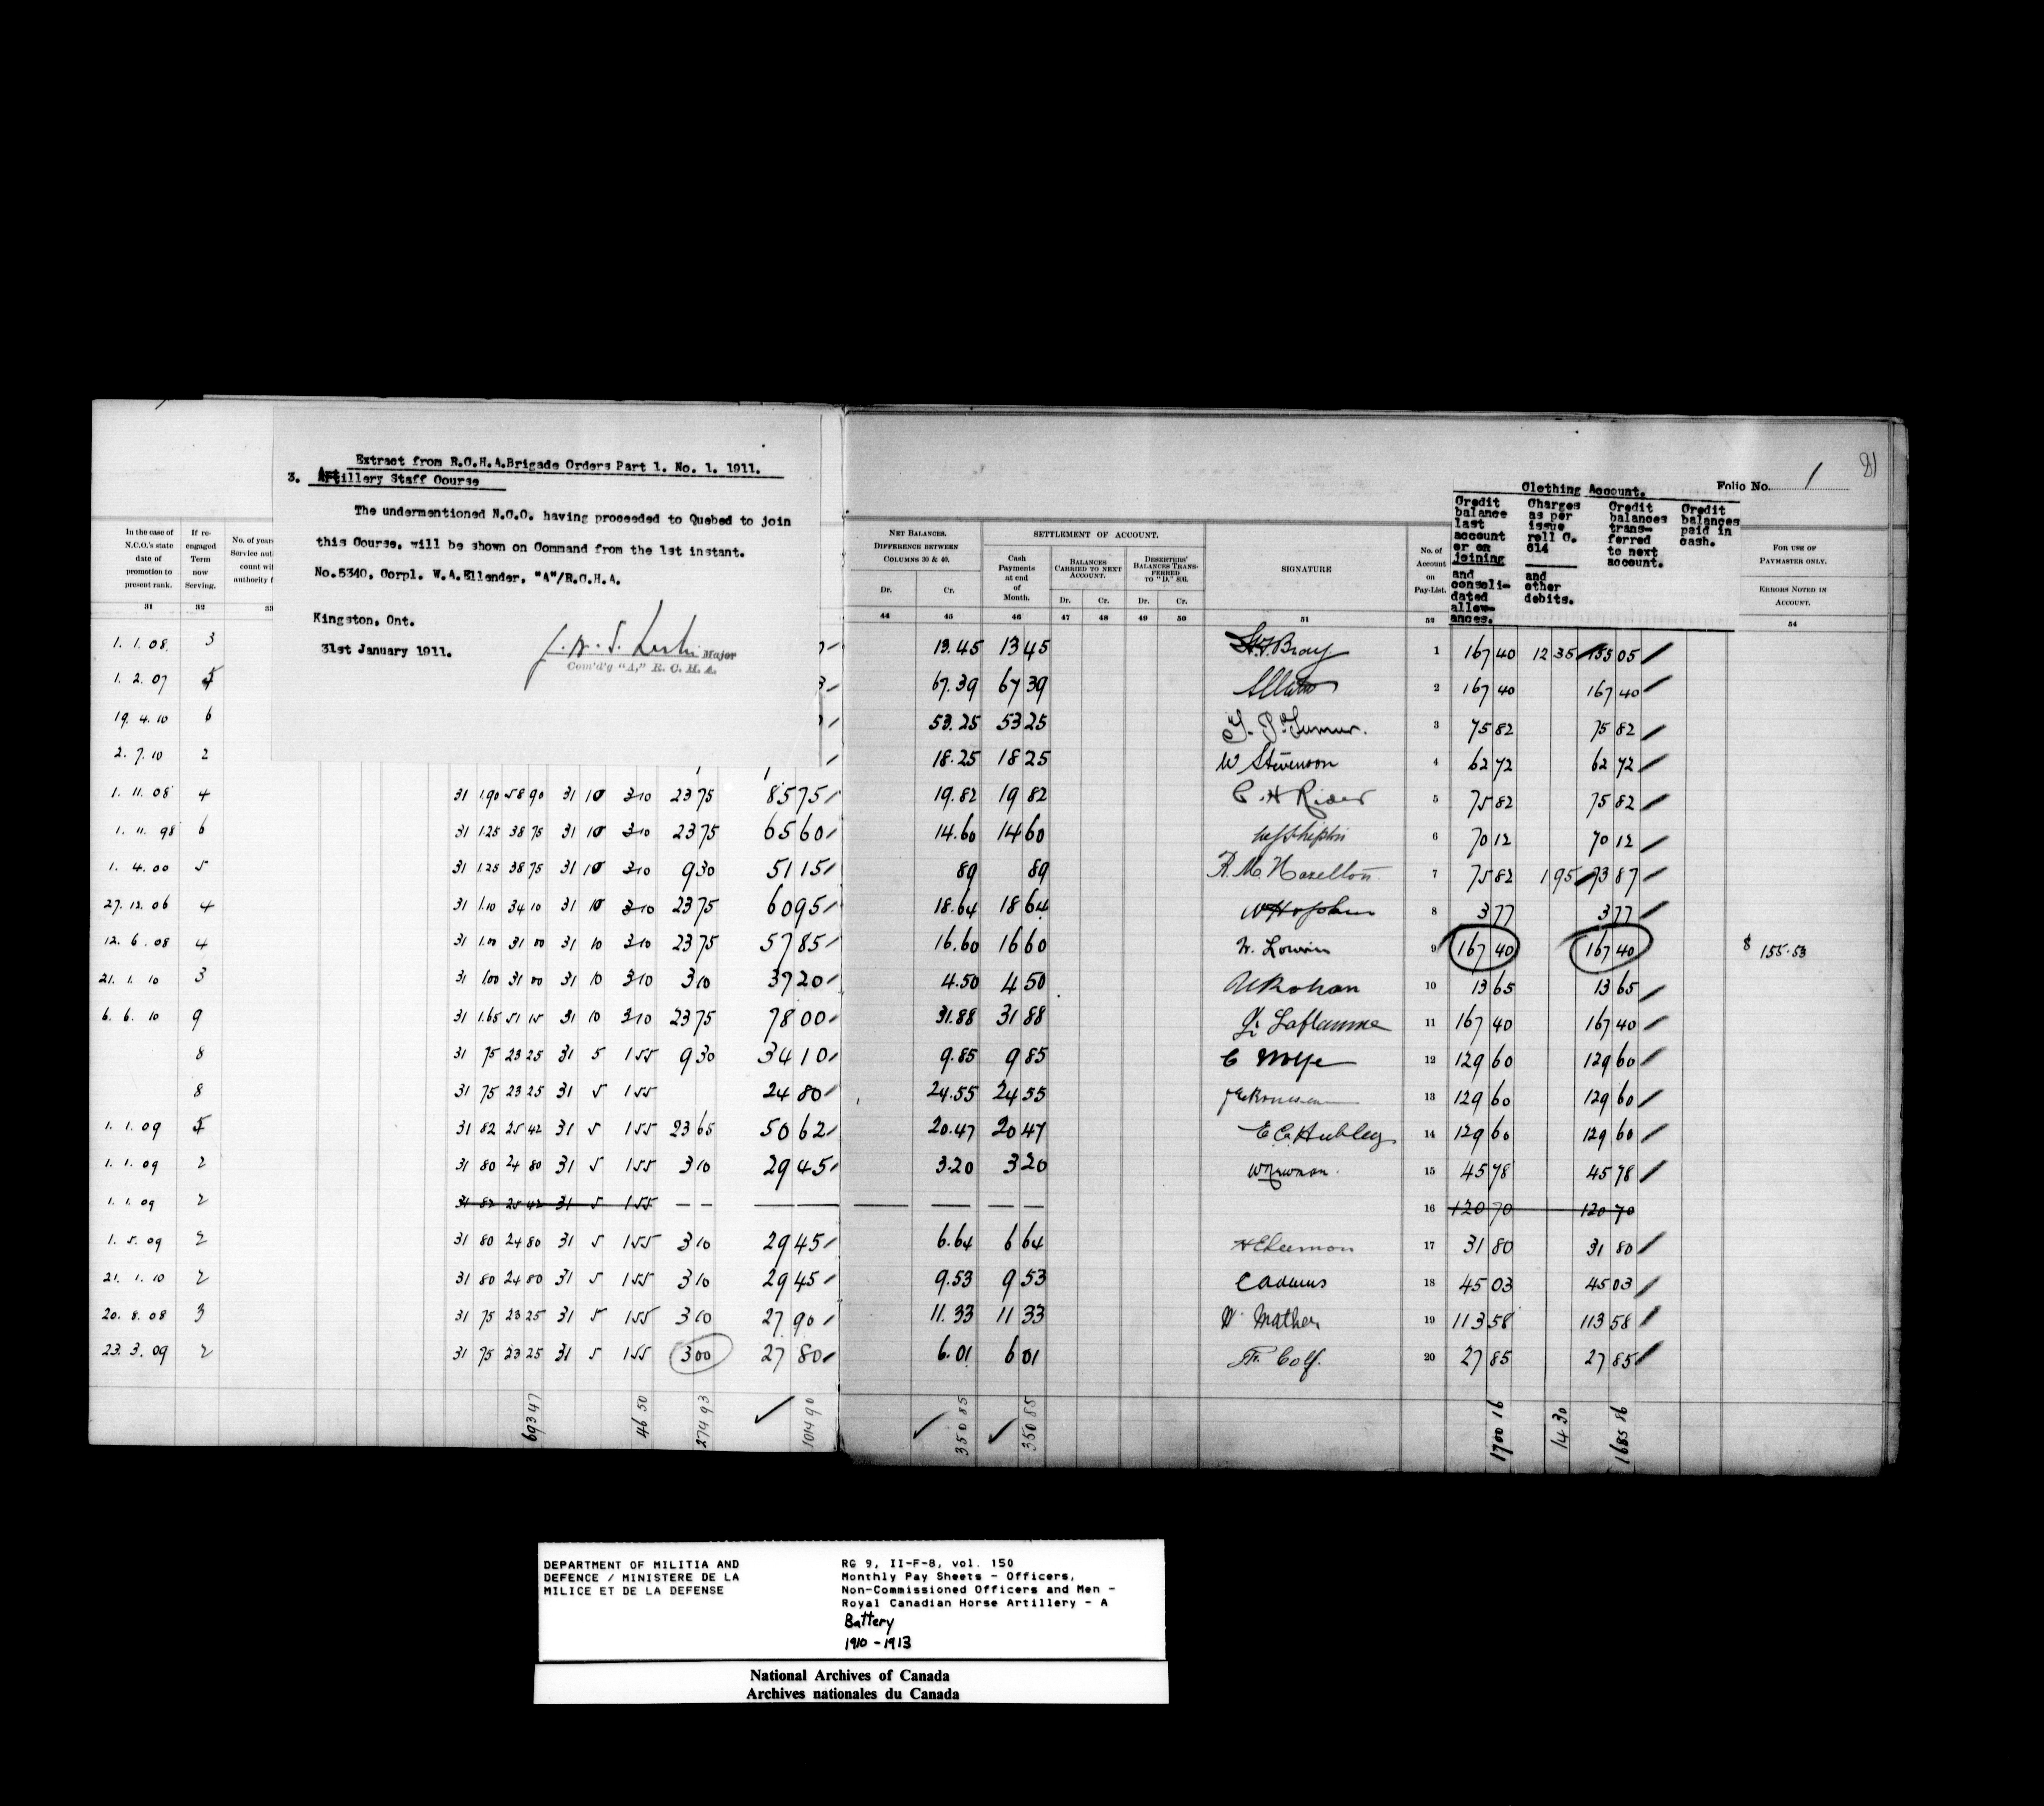 Extract from R.C.H.A.Brigade Orders Part 1. No. 1. 1911.
3. Artillery Staff Course
The undermentioned N.C.O. having proceeded to Quebed to join
this Course, will be shown on Command from the 1st instant.
No.5340, Corpl. W.A.Ellender, "A"/R.C.H.A.
Kingston, Ont.
31st January 1911.
Major
Com'd'g "A," R. C. H. A.
In the case of N.C.O.'s state date of promotion to present rank.
If re-engaged Term now Serving.
31 32 33
1. 1. 08. 3
1. 2. 07
19. 4. 10 6
2. 7. 10 2
1. 11. 08 4 31 1.90 58 90 31 10 3 10 23 75 85 75
1. 11. 98 6 31 1.25 38 75 31 10 3 10 23 75 65 60
1. 4. 00 5 31 1.25 38 75 31 10 3 10 9 30 51 15
27. 12. 06 4 31 1.10 34 10 31 10 3 10 23 75 60 95
12. 6. 08 4 31 1.00 31 00 31 10 3 10 23 75 57 85
21. 1. 10 3 31 1.00 31 00 31 10 3 10 3 10 37 20
6. 6. 10 9 31 1.65 51 15 31 10 3 10 23 75 78 00
8 31 75 23 25 31 5 1 55 9 30 34 10
8 31 75 23 25 31 5 1 55 24 80
1. 1. 09 31 82 25 42 31 5 1 55 23 65 50 62
1. 1. 09 2 31 80 24 80 31 5 1 55 3 10 29 45
1. 1. 09 2 31 82 25 42 31 5 1 55 — —
1. 5. 09 2 31 80 24 80 31 5 1 55 3 10 29 45
21. 1. 10 2 31 80 24 80 31 5 1 55 3 10 29 45
20. 8. 08 3 31 75 23 25 31 5 1 55 3 10 27 90
23. 3. 09 2 31 75 23 25 31 5 1 55 3 00 27 80
693 47 46 50 274 93 1014 90
81
Folio No. 1
Clothing Account.
Credit balance last account or on joining and consoli-dated allow-ances.
Charges as per issue roll C. 614 and other debits.
Credit balances trans-ferred to next account.
Credit balances paid in cash.
Net Balances.
Difference between Columns 30 & 40.
Dr. Cr.
SETTLEMENT OF ACCOUNT.
Cash Payments at end of Month.
Balances Carried to next Account.
Dr. Cr.
Deserters' Balances Trans-ferred to "D." 806.
Dr. Cr.
SIGNATURE
No. of Account on Pay-List.
For use of Paymaster only.
Errors Noted in Account.
44 45 46 47 48 49 50 51 52 54
13.45 13 45 Bray 1 167 40 12 35 155 05
67.39 67 39 2 167 40 167 40
53.25 53 25 3 75 82 75 82
18.25 18 25 W Stevenson 4 62 72 62 72
19.82 19 82 C. H Rider 5 75 82 75 82
14.60 14 60 6 70 12 70 12
89 89 R. M. Hazelton 7 75 82 1 95 73 87
18.64 18 64 W Hopkins 8 3 77 3 77
16.60 16 60 9 167 40 167 40 $ 155.53
4.50 4 50 Rohan 10 13 65 13 65
31.88 31 88 Laflamme 11 167 40 167 40
9.85 9 85 C Wolfe 12 129 60 129 60
24.55 24 55 13 129 60 129 60
20.47 20 47 E C. Hubley 14 129 60 129 60
3.20 3 20 W Newman 15 45 78 45 78
— — — — 16 120 70 120 70
6.64 6 64 17 31 80 31 80
9.53 9 53 C Adams 18 45 03 45 03
11.33 11 33 W. Mather 19 113 58 113 58
6.01 6 01 20 27 85 27 85
350 85 350 85 1700 16 14 30 1685 86
DEPARTMENT OF MILITIA AND
DEFENCE / MINISTERE DE LA
MILICE ET DE LA DEFENSE
RG 9, II-F-8, vol. 150
Monthly Pay Sheets - Officers,
Non-Commissioned Officers and Men -
Royal Canadian Horse Artillery - A
Battery
1910 - 1913
National Archives of Canada
Archives nationales du Canada